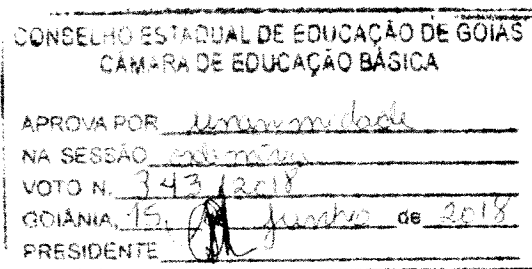 CONSELHO ESTADUAL DE EDUCAÇÃO DE GOIÁS
CÂMARA DE EDUCAÇÃO BÁSICA
APROVA POR unanimidade
NA SESSÃO ordinária
VOTO N. 343/2018
GOIÂNIA, 15, junho de 2018
PRESIDENTE